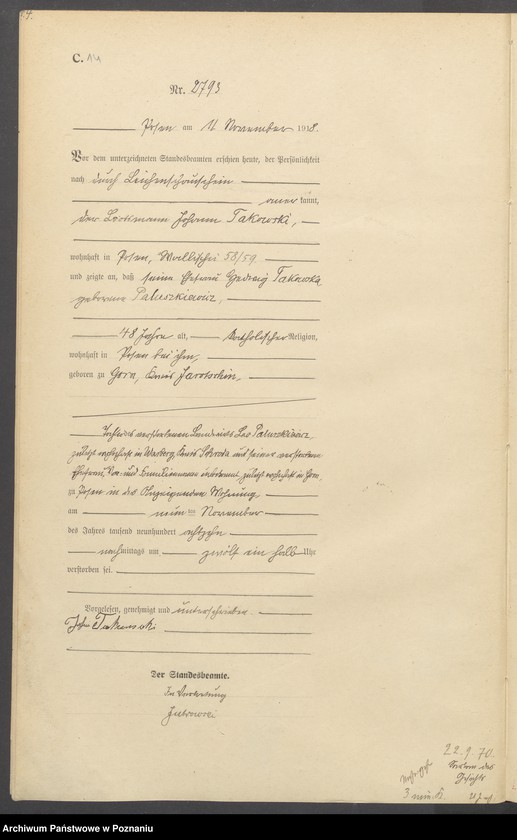 C. 14
Nr. 2793
Posen am 11 November 1918.
Vor dem unterzeichneten Standesbeamten erschien heute, der Persönlichkeit
nach durch Leichenschauschein
anerkannt,
der Johann Takowski,
wohnhaft in Posen, Wallischei 58/59
und zeigte an, daß seine Ehefrau Hedwig Takowska
geborene Paluszkiewicz,
48 Jahre alt, katholischer Religion,
wohnhaft in Posen bei ihm,
geboren zu Gora, Kreis Jarotschin,
Tochter des verstorbenen Landwirts Leo Paluszkiewicz,
zuletzt wohnhaft in Kreis Schroda und seiner verstorbenen
Ehefrau, Vor- und Familiennamen unbekannt, zuletzt wohnhaft in Gora,
zu Posen in der Wohnung
am neun ten November
des Jahres tausend neunhundert achtzehn
nachmittags um zwölf ein halb Uhr
verstorben sei.
Vorgelesen, genehmigt und unterschrieben
Takowski
Der Standesbeamte.
In Vertretung
22.9.70.
des
3
Archiwum Państwowe w Poznaniu